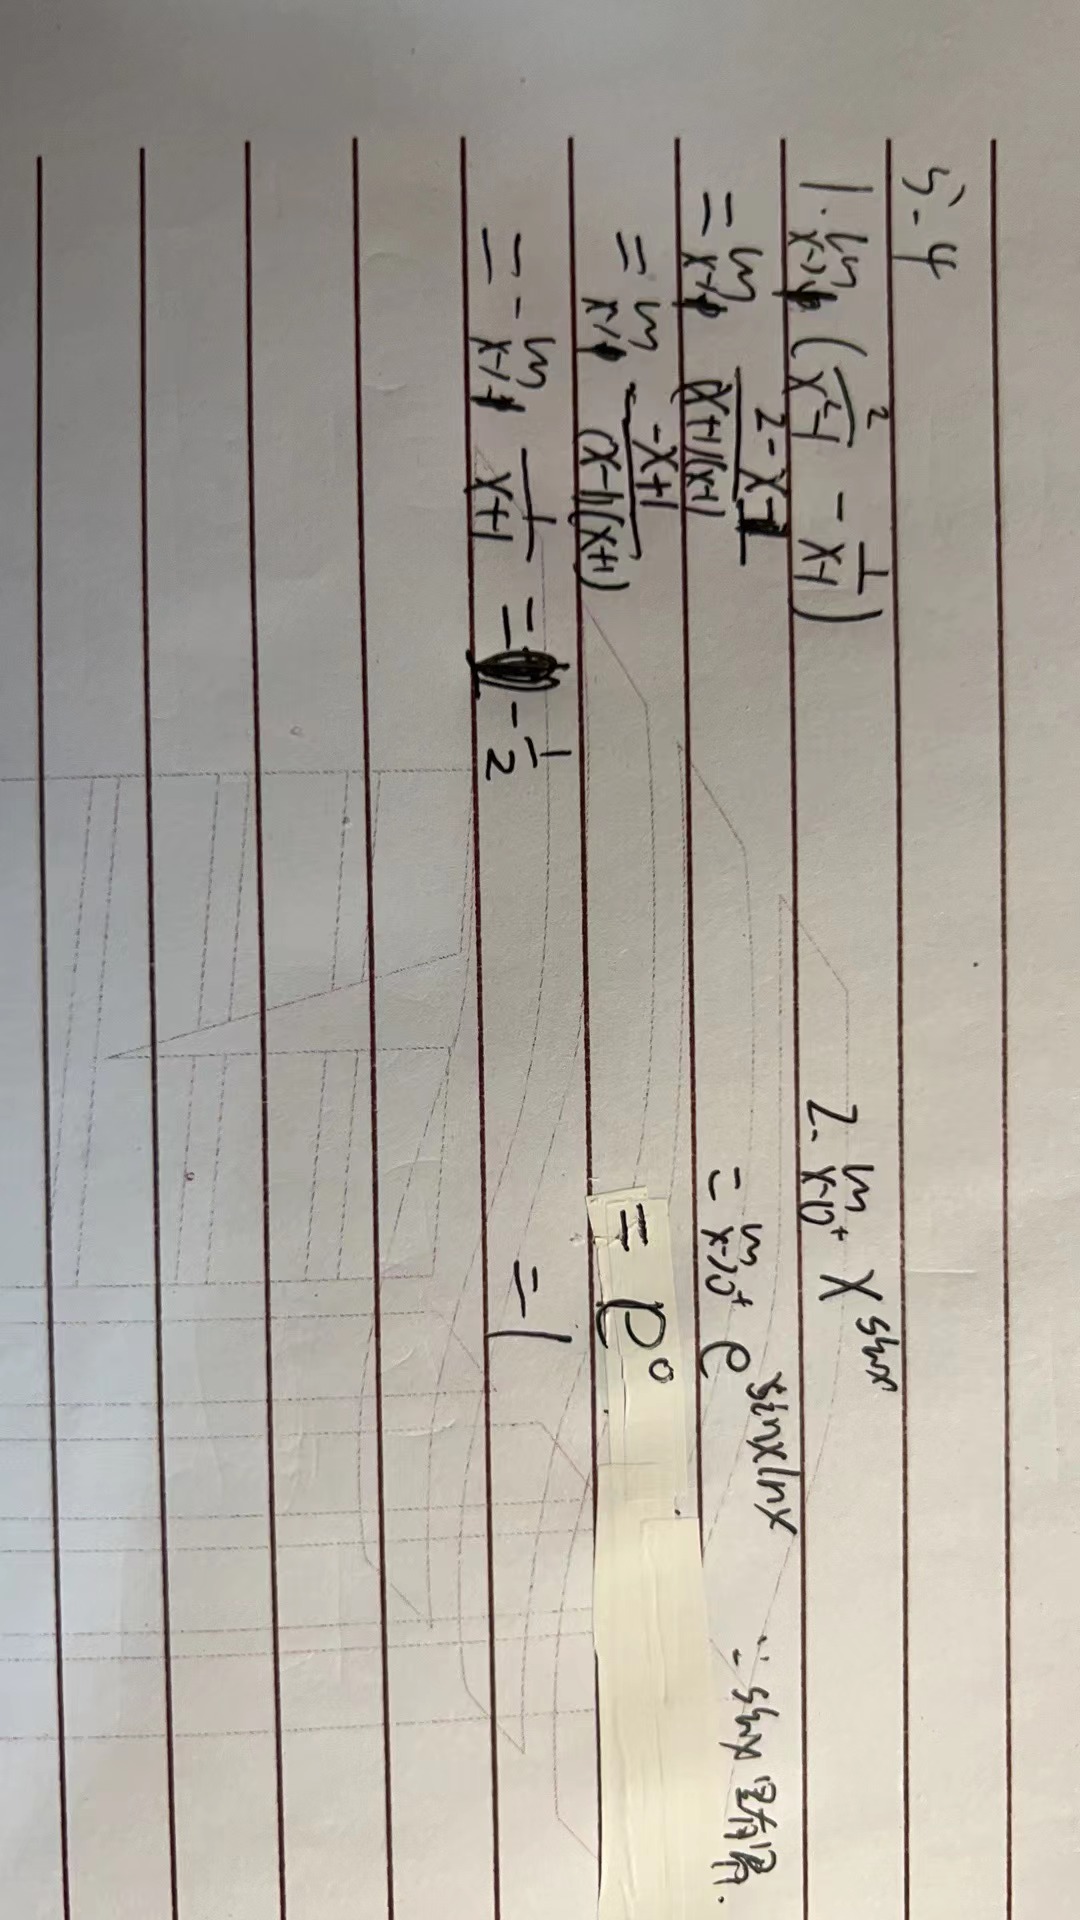 5-4
1. lim x→1 (2/(x²-1) - 1/(x-1))
= lim x→1 (2-x-1)/((x+1)(x-1))
= lim x→1 (-x+1)/((x-1)(x+1))
= - lim x→1 1/(x+1) = -1/2
2. lim x→0⁺ x^sinx
= lim x→0⁺ e^sinxlnx ∵ sinx
= e⁰
= 1